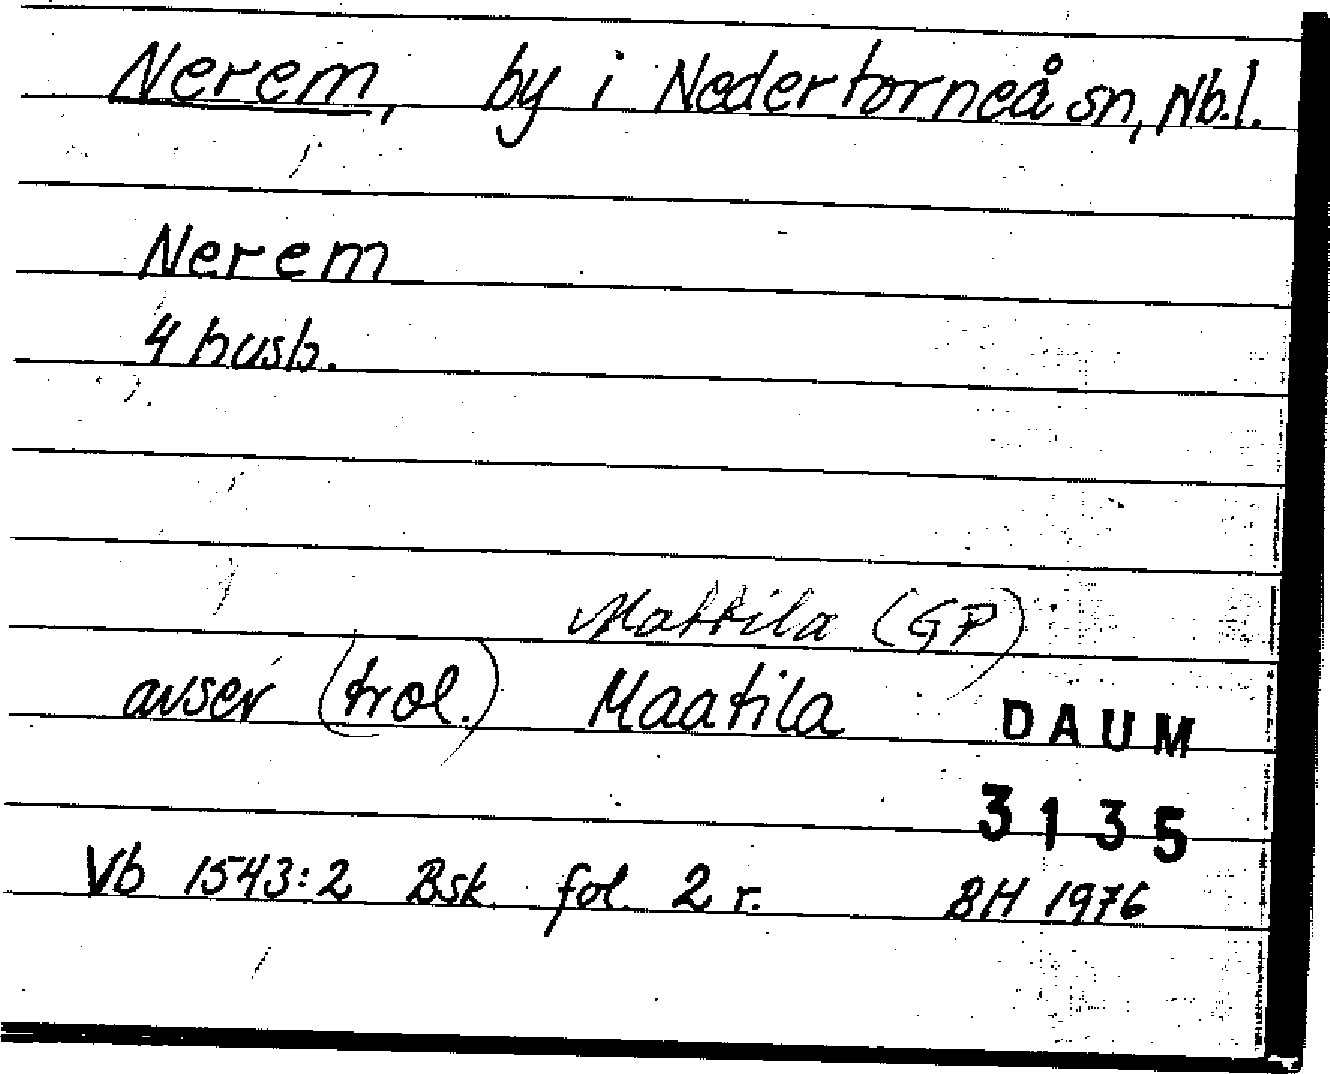 Nerem, by i Nedertorneå sn, Nb.l.
Nerem
4 busb.
Mattila (GP)
avser (trol.) Maatila
DAUM
3135
Vb 1543:2 Bsk fol. 2 r. BH 1976